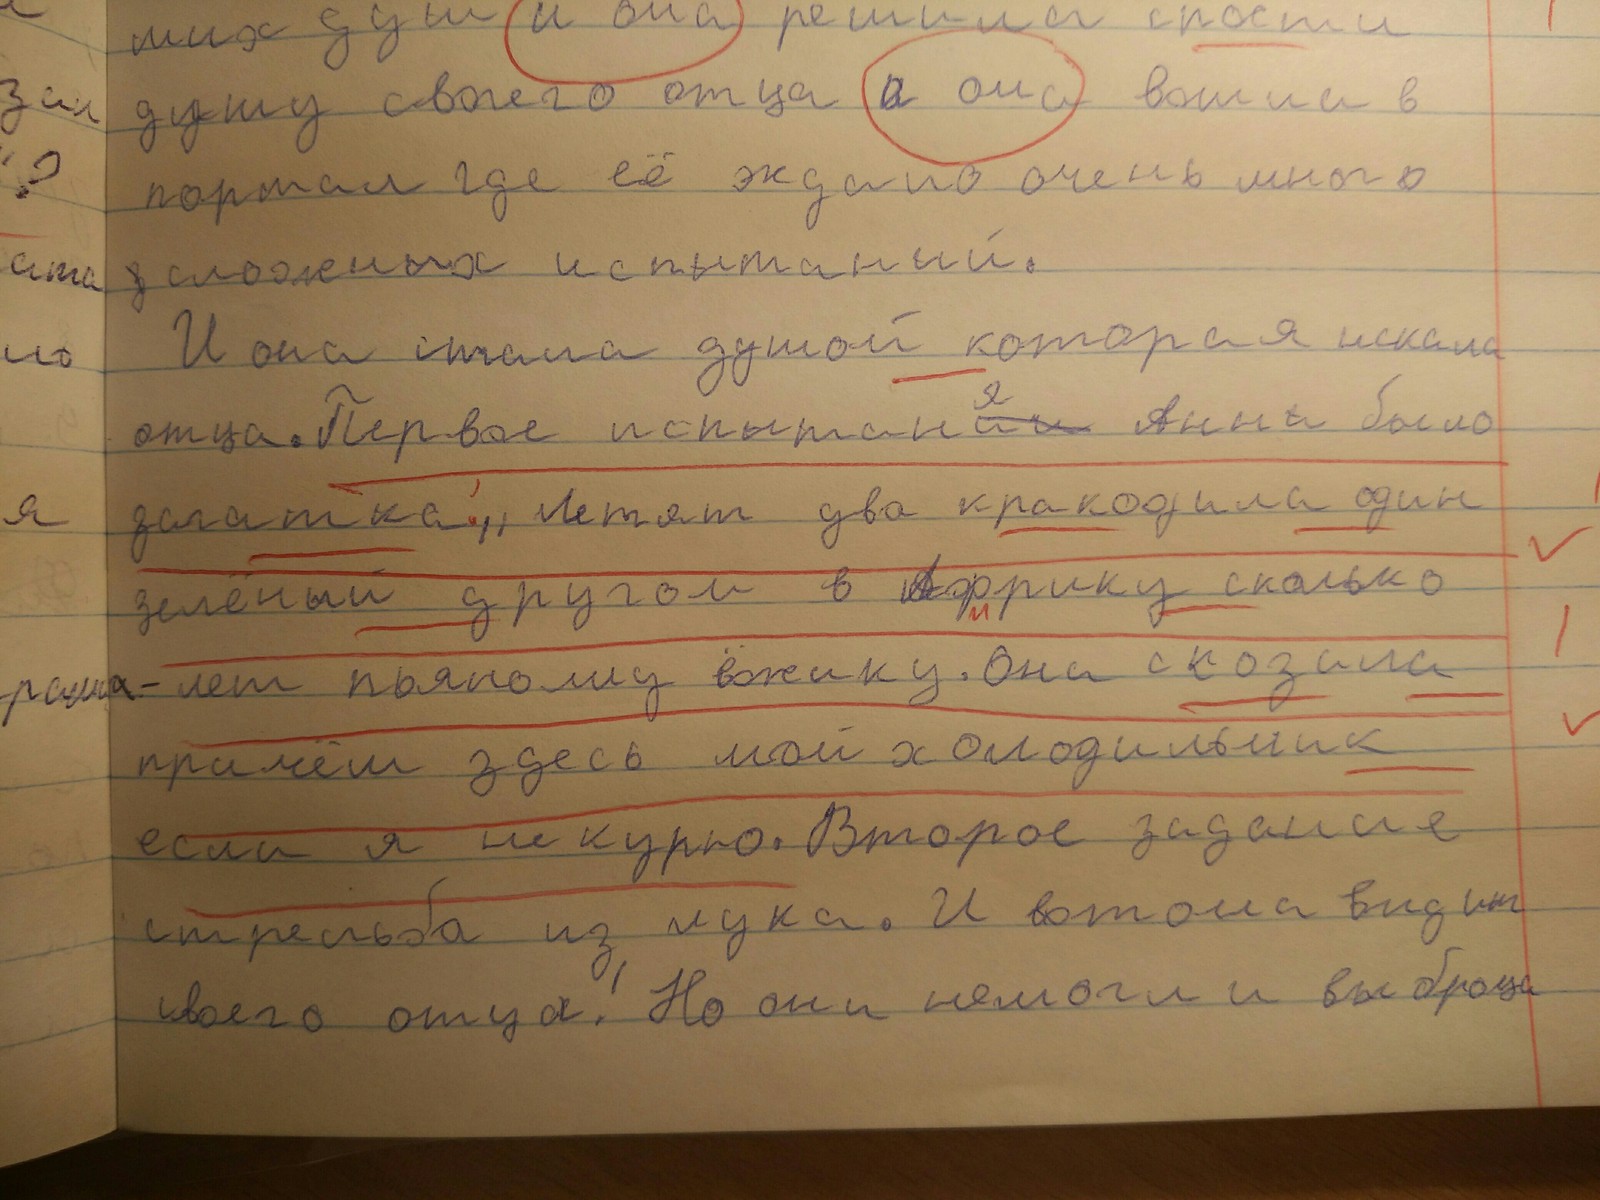 мих душ и она решила спости
зал душу своего отца а она вошла в
"? портал где её ждало очень много
сложеных испытаний.
ло И она стала душой которая искала
отца. Первое испытания Анны было
я загатка: „Летят два кракодила один
зелёный другом в Африку сколько
лет пьяному ёжику. Она скозала
причём здесь мой холодильник
если я не курю. Второе задание
стрельба из лука. И вот она видит
своего отца! Но они немогли выброца